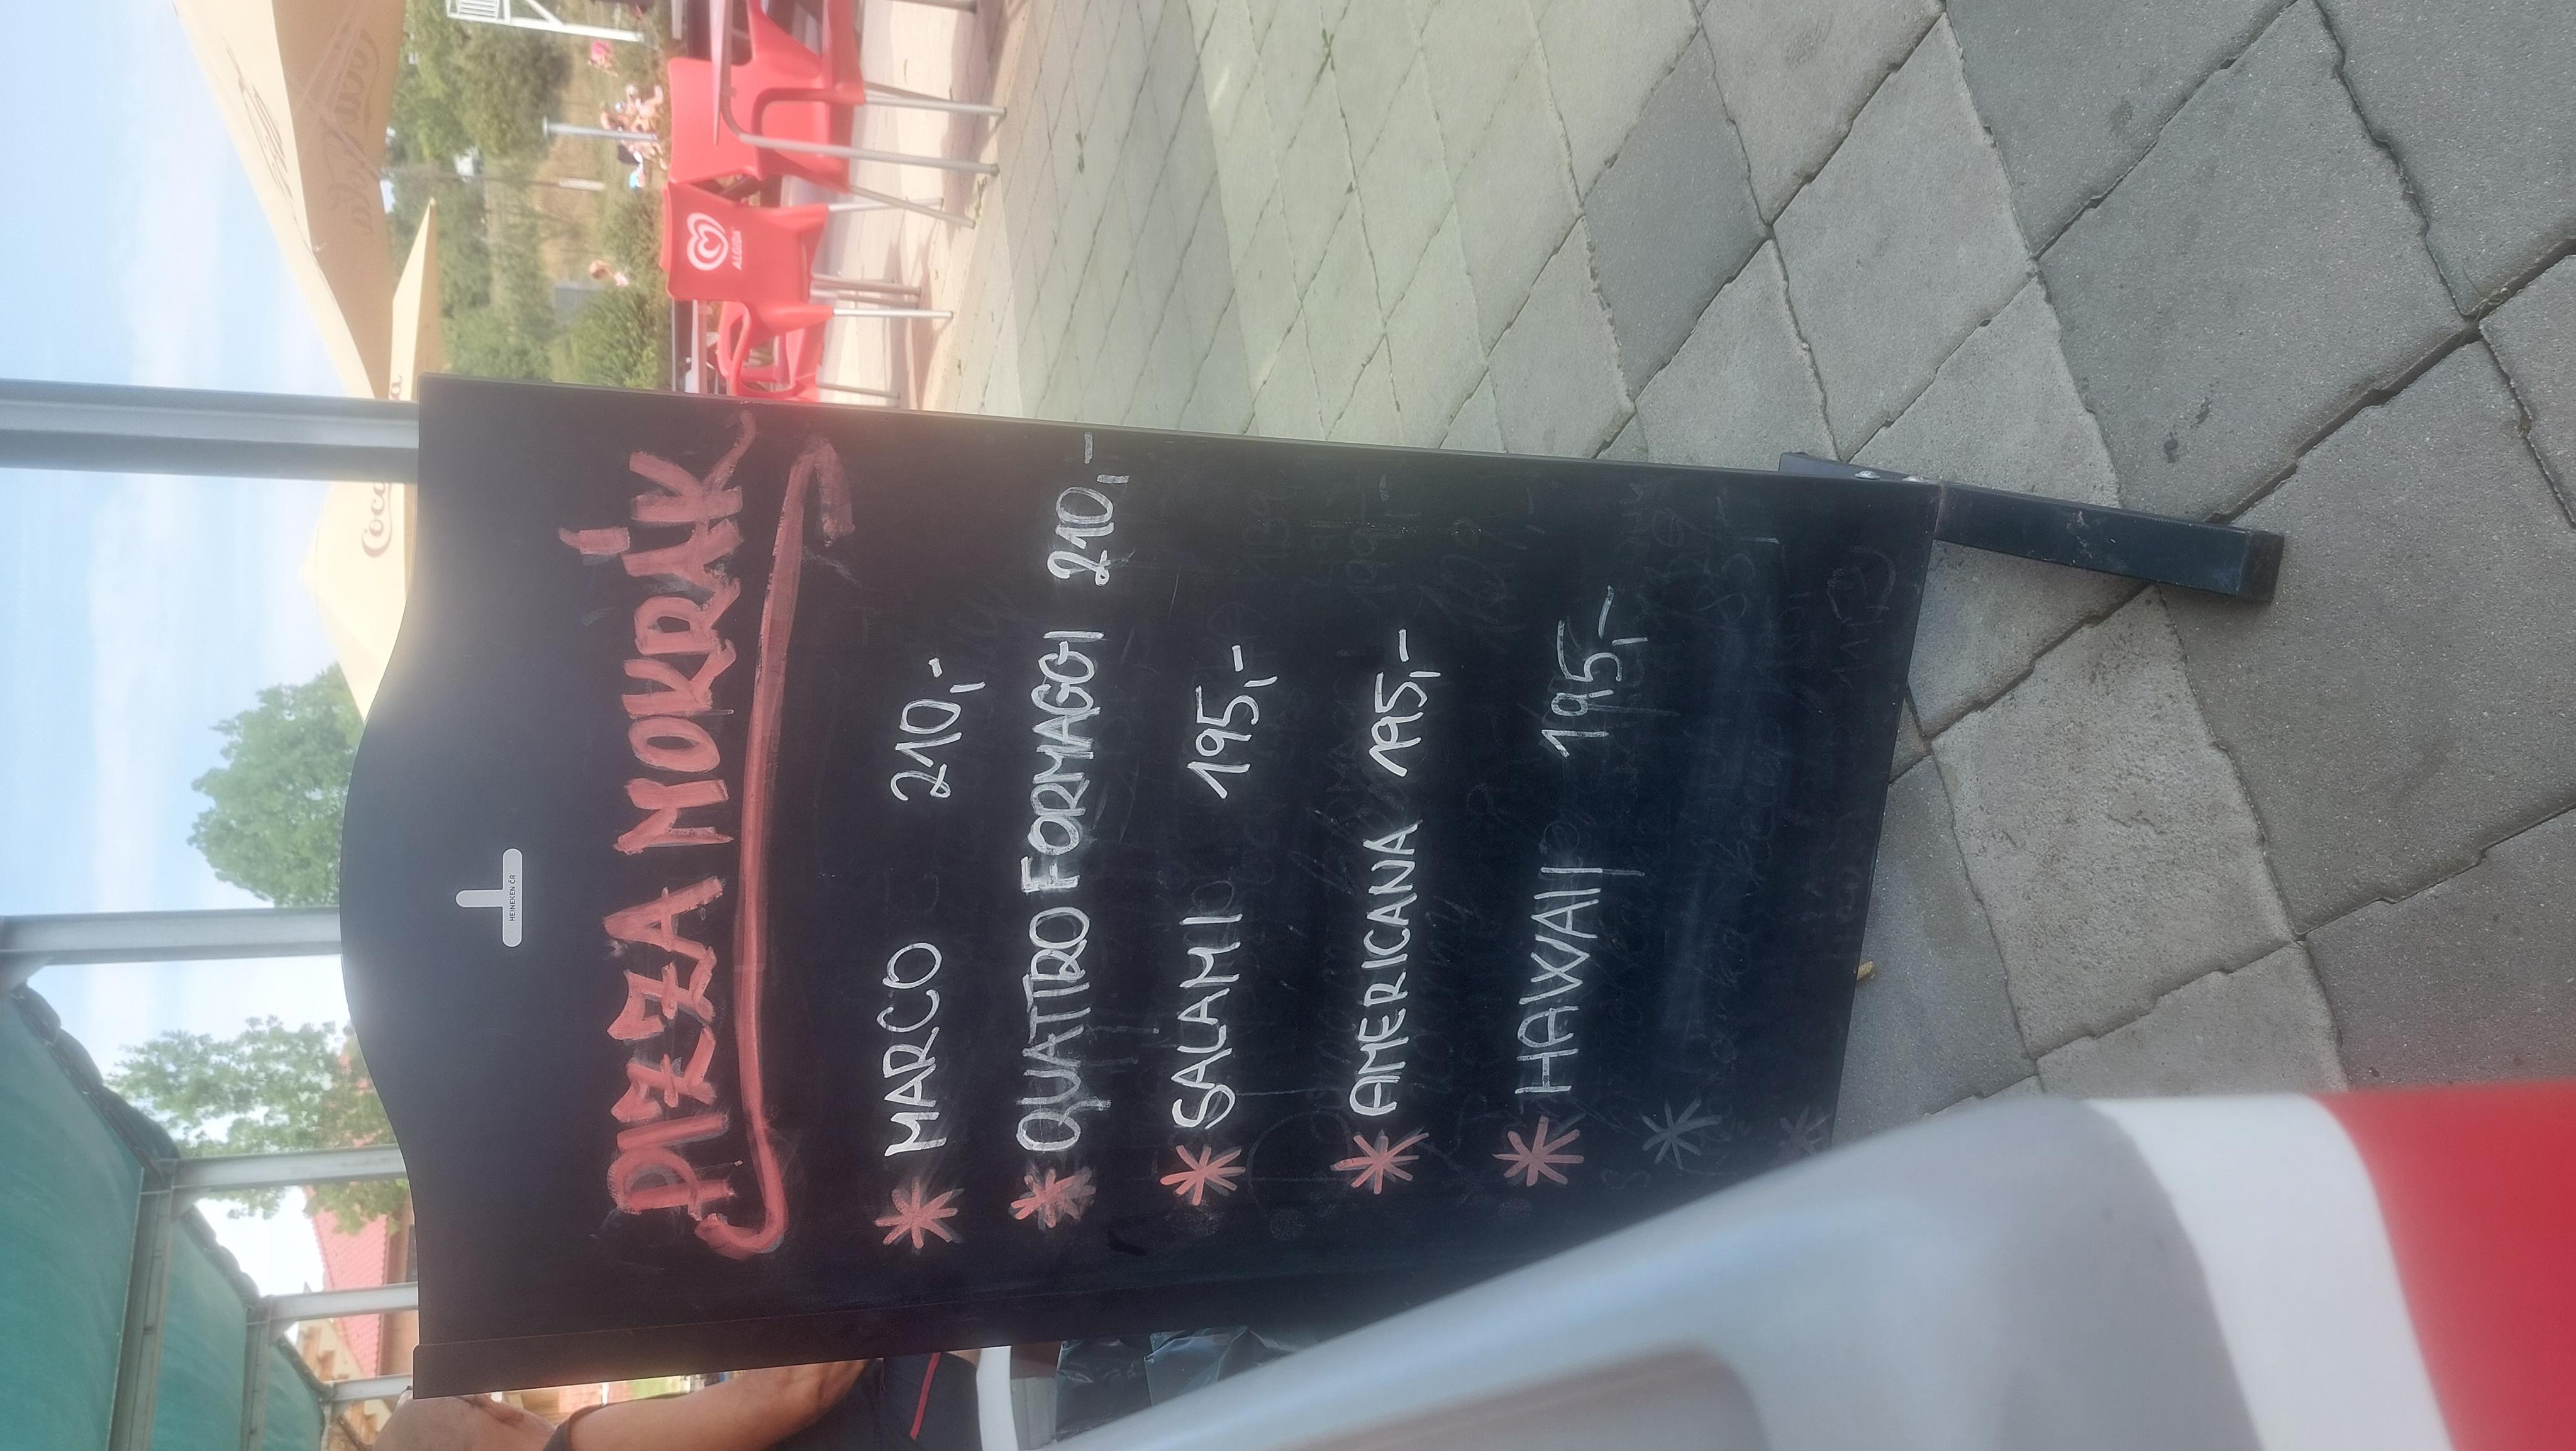 HEINEKEN ČR
PIZZA MOKRÁK
* MARCO 210,-
* QUATTRO FORMAGGI 210,-
* SALAMI 195,-
* AMERICANA 195,-
* HAWAII 195,-
ALGIDA
Coca-Cola